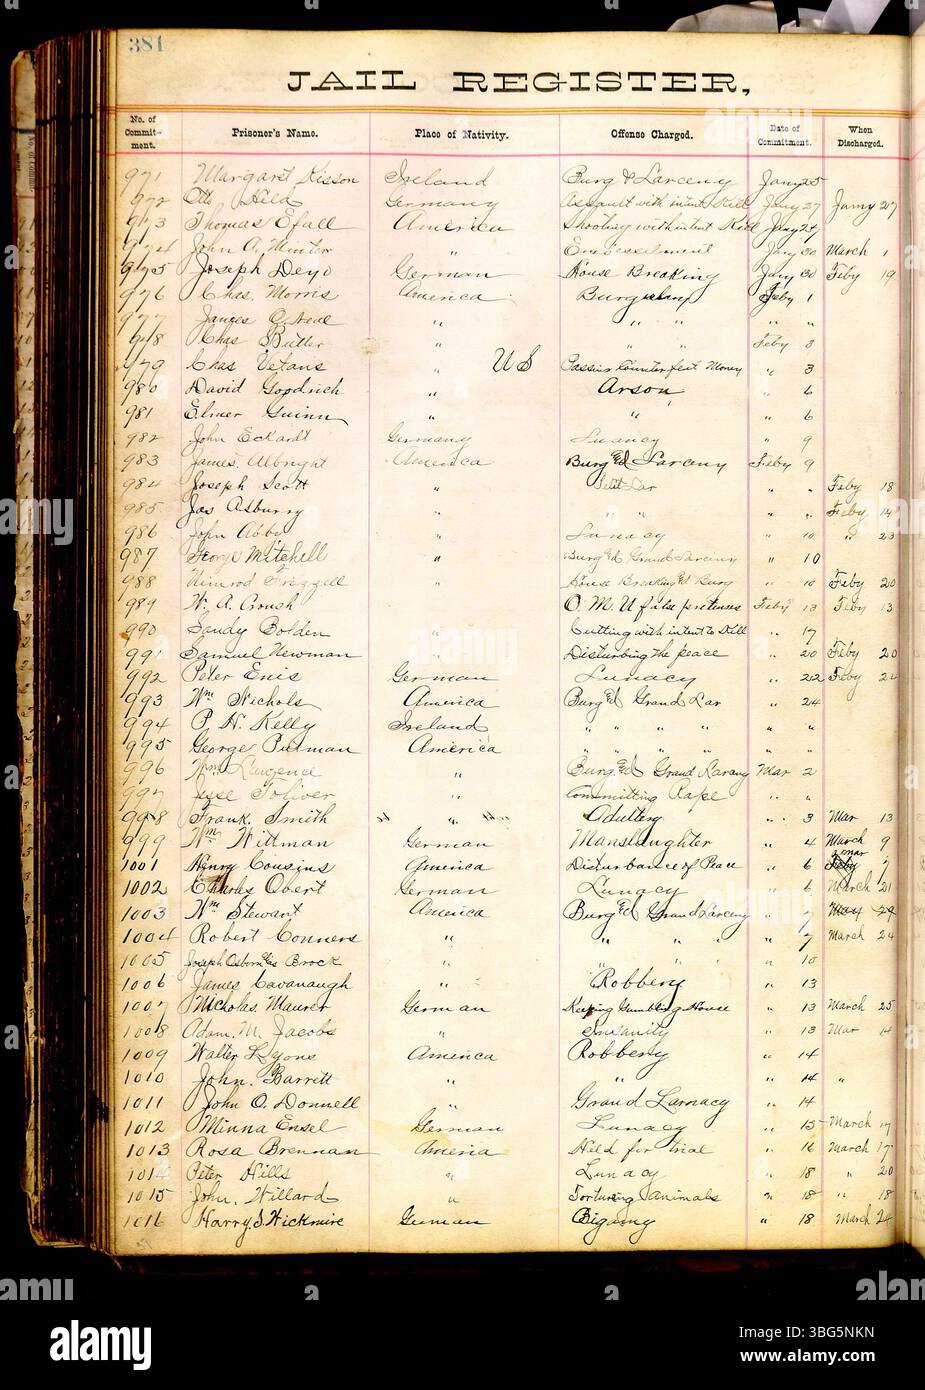 381
JAIL REGISTER,
No. of Commit-ment. Prisoner's Name. Place of Nativity. Offense Charged. Date of Commitment. When Discharged.
971 Margaret Kisson Ireland Burg & Larceny Jany 25
972 Otto Hild Germany Assault with intent Kill Jany 27 Jany 27
973 Thomas Efall America Shooting with intent Kill Jany 27
974 John A. Minter " Embesselment Jany 30 March 1
975 Joseph Deyo German House Breaking Jany 30 Feby 19
976 Chas. Morris America Burg Feby 1
977 James O. Neal " " " " "
978 Chas Butler " " " Feby 3
979 Chas Vetans " US Passing Counterfeit Money " 3
980 David Goodrich " Arson " 6
981 Elmer Guinn " " " 6
982 John Eckardt Germany Lunacy " 9
983 James Albright America Burg Ed Larceny Feby 9
984 Joseph Scott " Petit Lar " " Feby 18
985 Jas Asburry " " " " " Feby 14
986 John Abby " Lunacy " 10 " 23
987 George Mitchell " Burg Ed Grand Larceny " 10
988 Nimrod Frizzell " House Breaking Ed Burg " 10 Feby 20
989 W. A. Crouch " O. M. U false pretenses Feby 13 Feby 13
990 Sandy Bolden " Cutting with intent to Kill " 17
991 Samuel Newman " Disturbing the peace " 20 Feby 20
992 Peter Enis German Lunacy " 22 Feby 24
993 Wm Nichols America Burg Ed Grand Lar " 24
994 P. H. Kelly Ireland " " " " " "
995 George Putman America " " " " " "
996 Wm Lawrence " Burg Ed Grand Larceny Mar 2
997 Jesse Toliver " Committing Rape " "
998 Frank Smith " " " Adultery " 3 Mar 13
999 Wm Wittman German Manslaughter " 4 March 9
1001 Henry Cousins America Disturbance of Peace " 6 Mar 7
1002 Charles Obert German Lunacy " 6 March 21
1003 Wm Stewart America Burg Ed Grand Larceny " 7 May 29
1004 Robert Conners " " " " " 7 March 24
1005 Joseph Osborn as Brock " " " " " 10
1006 James Cavanaugh " Robbery " 13
1007 Nicholas Maurer German Keeping Gambling House " 13 March 25
1008 Adam. M. Jacobs " Insanity " 13 Mar 14
1009 Walter Lyons America Robbery " 14
1010 John. Barrett " " " 14 "
1011 John O. Donnell " Grand Larnacy " 14
1012 Minna Ensel German Lunacy " 15 March 17
1013 Rosa Brennan America Held for trial " 16 March 17
1014 Peter Hills " Lunacy " 18 " 20
1015 John. Willard " Torturing animals " 18 " 18
1016 Harry. S. Wickmire German Bigamy " 18 March 24
alamy
Image ID: 3BG5NKN
www.alamy.com